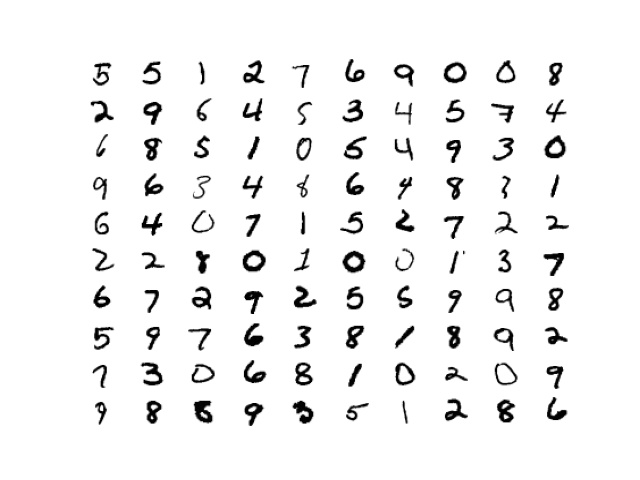 5 5 1 2 7 6 9 0 0 8
2 9 6 4 5 3 4 5 7 4
6 8 5 1 0 5 4 9 3 0
9 6 3 4 8 6 4 8 3 1
6 4 0 7 1 5 2 7 2 2
2 2 8 0 1 0 0 1 3 7
6 7 2 9 2 5 5 9 9 8
5 9 7 6 3 8 1 8 9 2
7 3 0 6 8 1 0 2 0 9
9 8 8 9 3 5 1 2 8 6